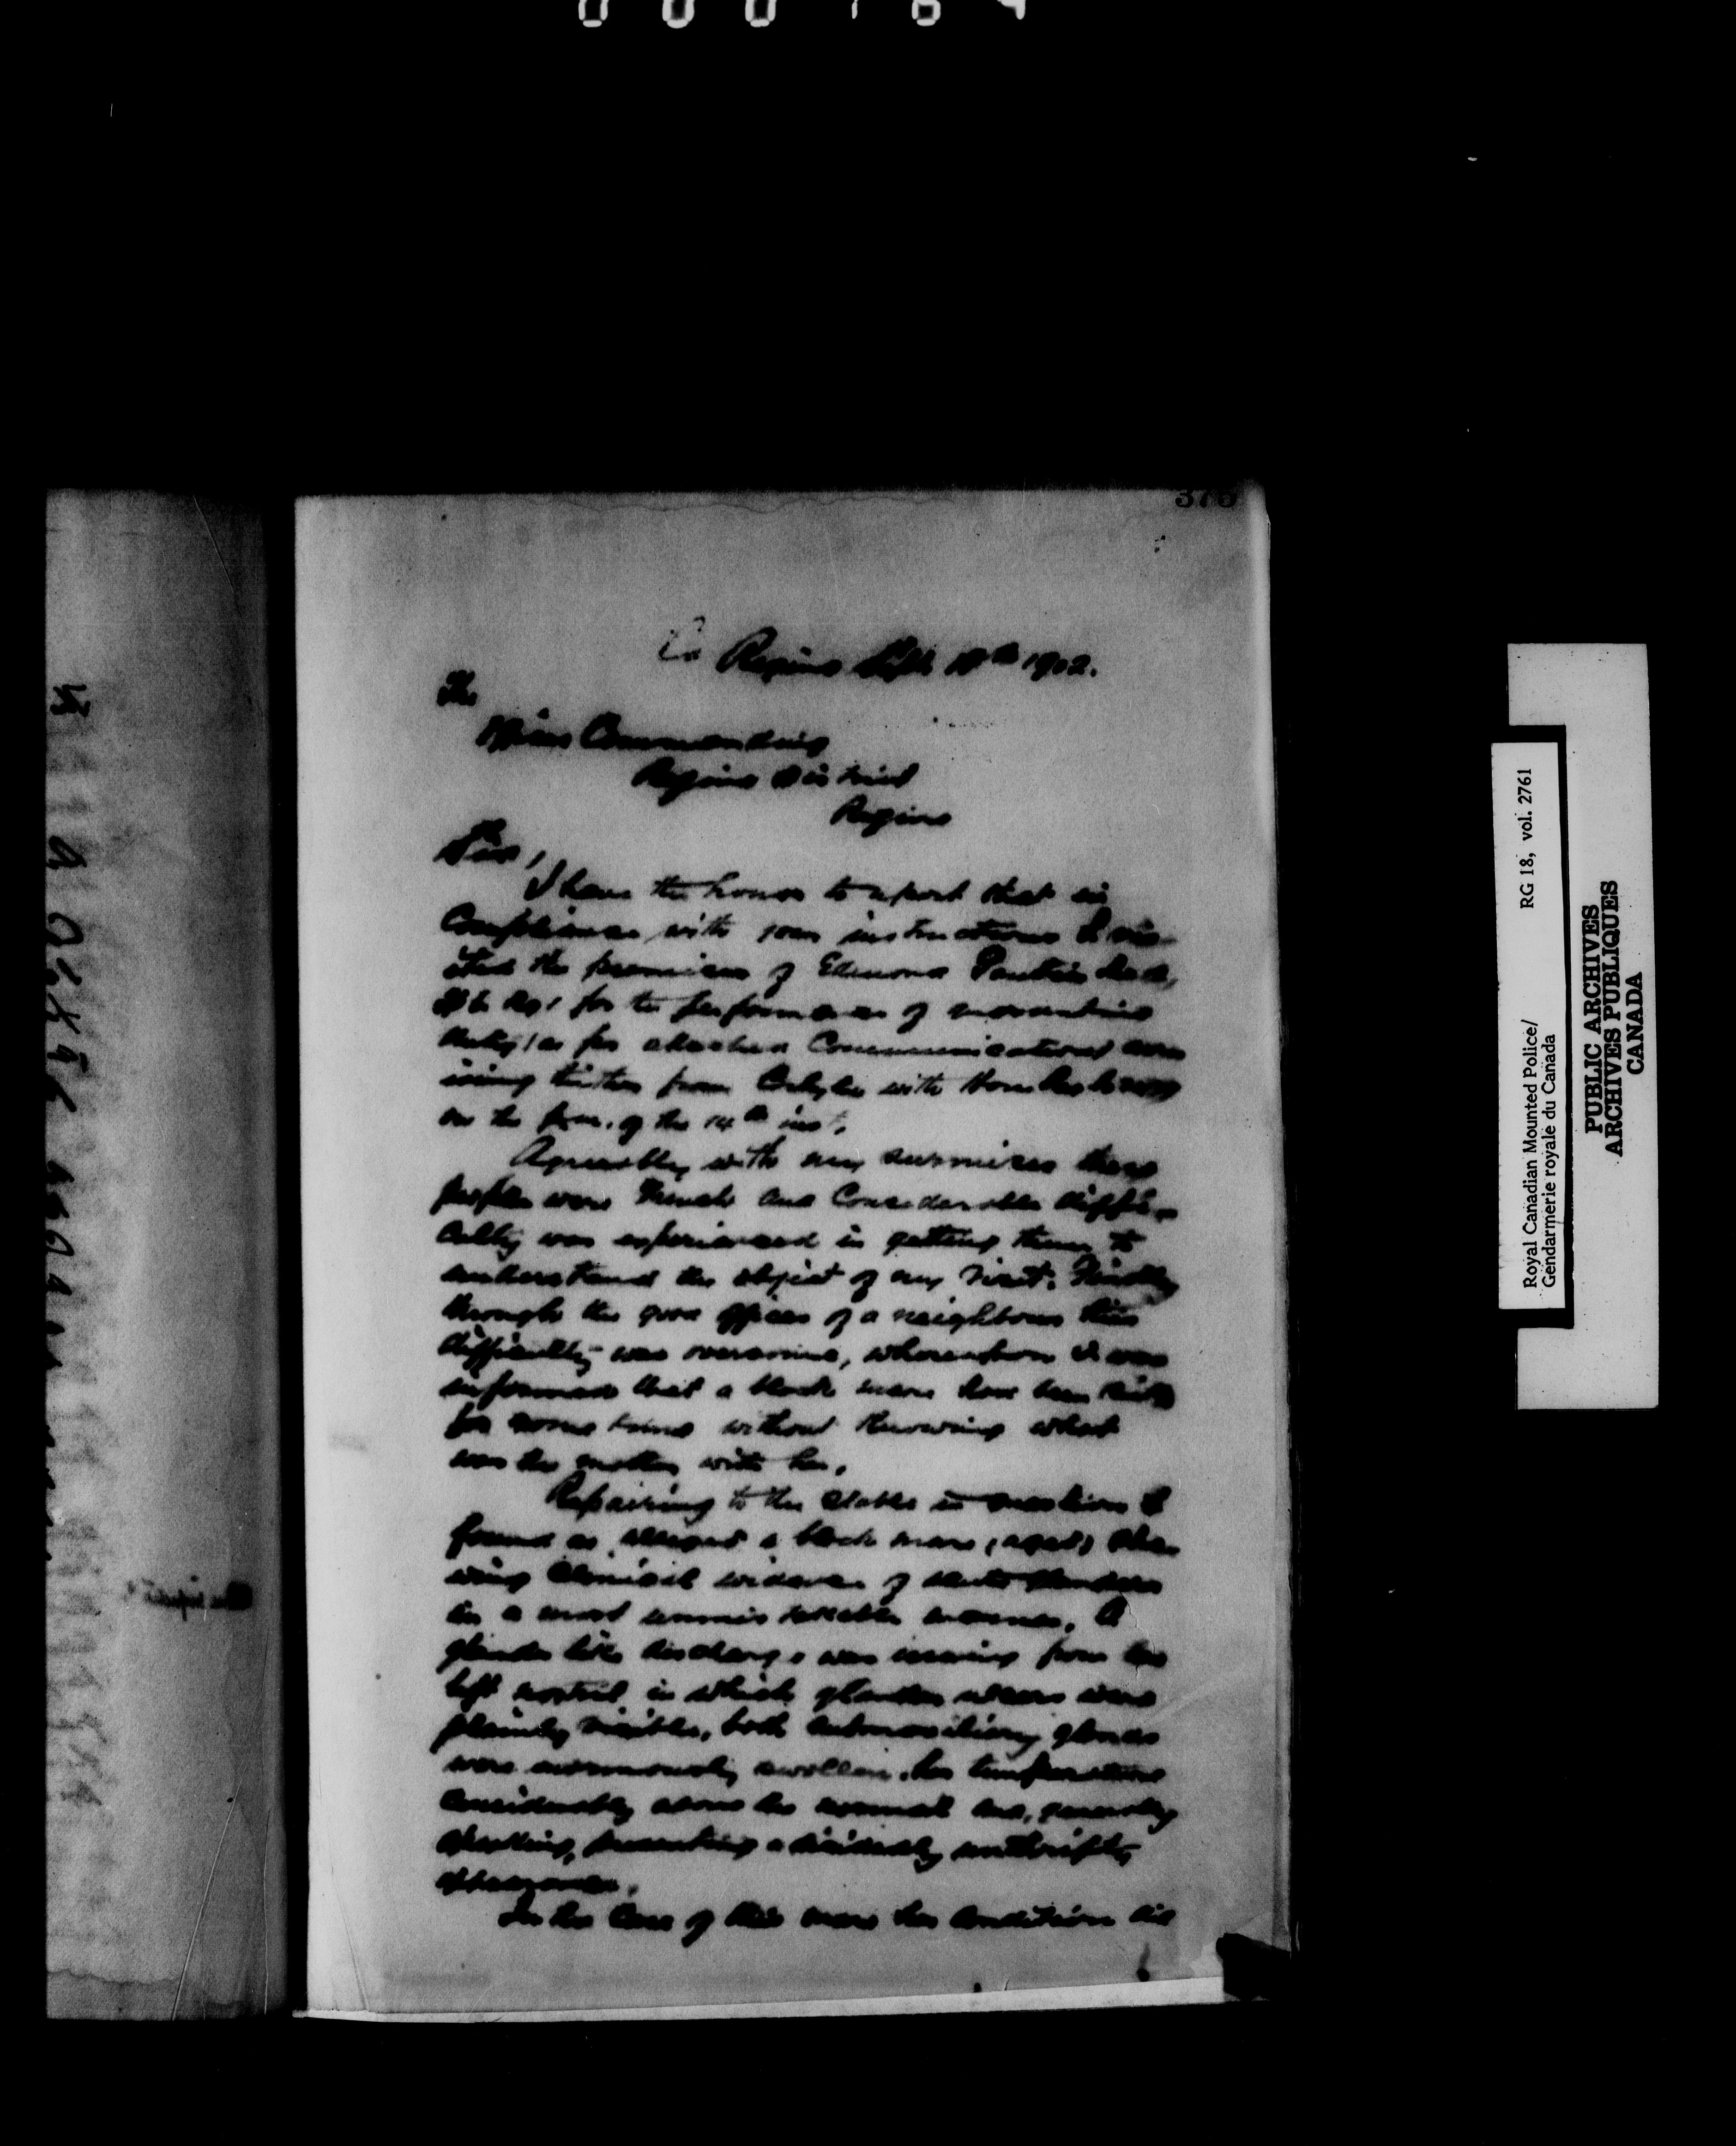 376
Regina Sept. 18th 1902.
The
Officer Commanding
Regina District
Regina
Sir,
I have the honor to report that in
Compliance with your instructions I vis-
ited the premises of Edmond
for the performance of
duty (as per attached Communication) arr-
iving thither from with
on the of the 14th inst.
Agreeably with my surmises these
people were French and Considerable diffi-
culty was experienced in getting them to
understand the object of my visit. Finally
through the good offices of a neighbour this
difficulty was overcome, whereupon I was
informed that a black mare had been sick
for some time without knowing what
was the matter with her.
Repairing to the stable in question I
found as alleged a black mare, (aged) sho-
wing Clinical evidence of acute glanders
in a most unmistakable manner. A
glander like discharge was issuing from her
left nostril in which glander ulcers were
plainly visible, both submaxiliary glands
were enormously swollen, her temperature
considerably above the normal and, generally
speaking, presenting a decidedly unthrifty
appearance.
In the Case of this mare her condition did
Royal Canadian Mounted Police/
Gendarmerie royale du Canada
RG 18, vol. 2761
PUBLIC ARCHIVES
ARCHIVES PUBLIQUES
CANADA